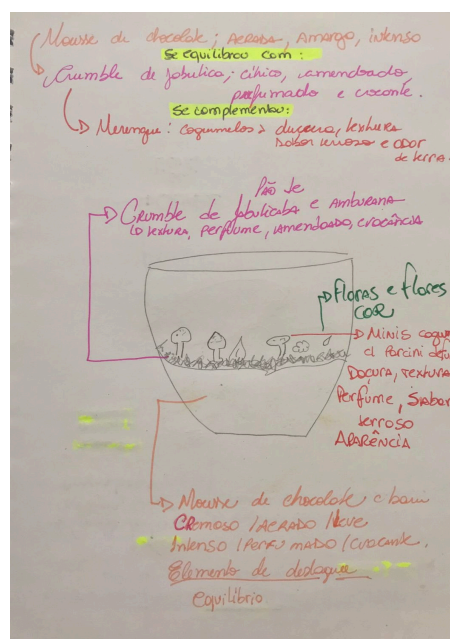 Mousse de chocolate; AERADA, Amargo, intenso
Se equilibrou com:
Crumble de Jabutica; cítrico, amendoado,
perfumado e crocante.
Se complementou:
Merengue: cogumelos > duçura, textura
sabor terroso e odor
de terra.
Pão de
Crumble de Jabuticaba e AMBURANA
textura, perfume, amendoado, crocância
Floras e flores
COR
Minis cogu
c/ Porcini
Doçura, textura
Perfume, Sabor
terroso
APARÊNCIA
Mousse de chocolate c bau
CREmoso / AERADO / leve
Intenso / PERFUMADO / CROCANTE.
Elemento de destaque
equilíbrio